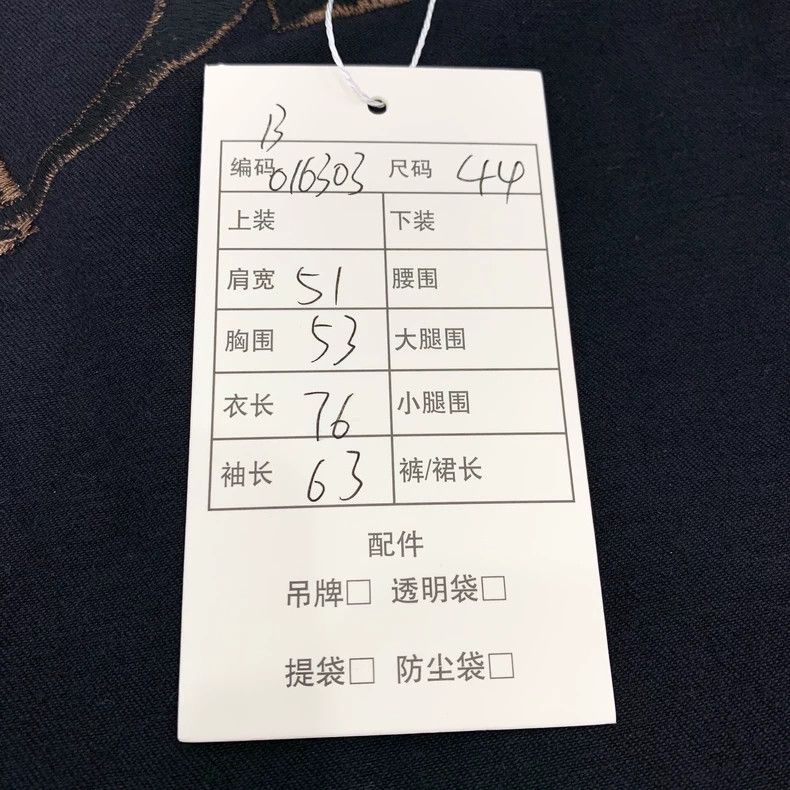 B
编码 016303 尺码 44
上装 下装
肩宽 51 腰围
胸围 53 大腿围
衣长 76 小腿围
袖长 63 裤/裙长
配件
吊牌□ 透明袋□
提袋□ 防尘袋□